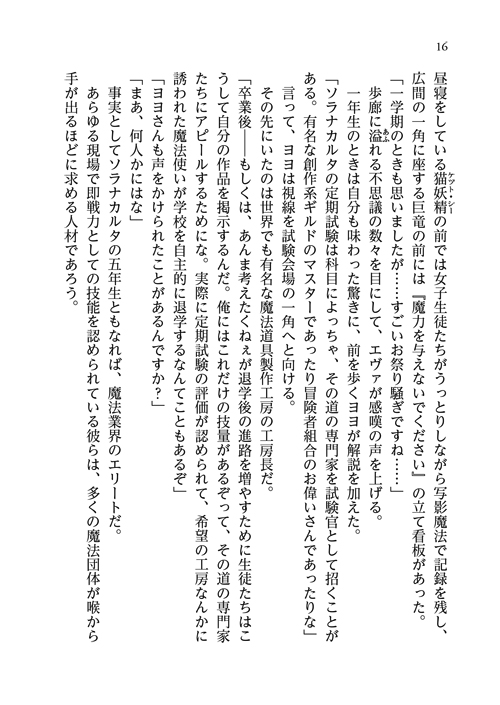 16
昼寝をしている猫妖精の前では女子生徒たちがうっとりしながら写影魔法で記録を残し、
ケアト・シー
広間の一角に座する巨竜の前には『魔力を与えないでください』の立て看板があった。
「一学期のときも思いましたが……すごいお祭り騒ぎですね……」
歩廊に溢れる不思議の数々を目にして、エヴァが感嘆の声を上げる。
あふ
一年生のときは自分も味わった驚きに、前を歩くヨヨが解説を加えた。
「ソラナカルタの定期試験は科目によっちゃ、その道の専門家を試験官として招くことが
ある。有名な創作系ギルドのマスターであったり冒険者組合のお偉いさんであったりな」
言って、ヨヨは視線を試験会場の一角へと向ける。
その先にいたのは世界でも有名な魔法道具製作工房の工房長だ。
「卒業後――もしくは、あんま考えたくねぇが退学後の進路を増やすために生徒たちはこ
うして自分の作品を掲示するんだ。俺にはこれだけの技量があるぞって、その道の専門家
たちにアピールするためにな。実際に定期試験の評価が認められて、希望の工房なんかに
誘われた魔法使いが学校を自主的に退学するなんてこともあるぞ」
「ヨヨさんも声をかけられたことがあるんですか？」
「まあ、何人かにはな」
事実としてソラナカルタの五年生ともなれば、魔法業界のエリートだ。
あらゆる現場で即戦力としての技能を認められている彼らは、多くの魔法団体が喉から
手が出るほどに求める人材であろう。